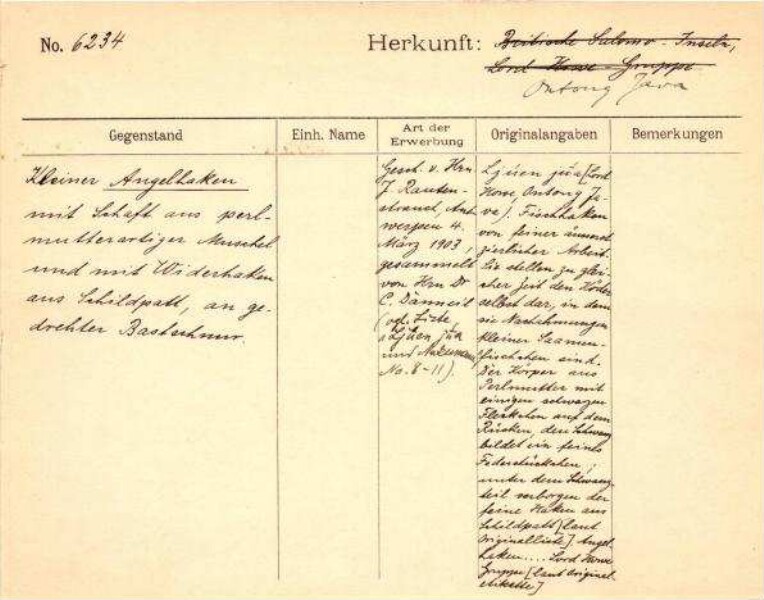 No. 6234
Herkunft: Britische Salomo-Inseln,
Lord Howe-Gruppe
Ontong Java
Gegenstand
Einh. Name
Art der Erwerbung
Originalangaben
Bemerkungen
Kleiner Angelhaken
mit Schaft aus perl-
mutterartiger Muschel
und mit Widerhaken
aus Schildpatt, an ge-
drehter Bastschnur.
Gesch. v. Hrn
J. Rauten-
strauch, Ant
werpen 4.
März 1903,
gesammelt
von Hrn Dr
C. Danneil
(vgl. Liste
Ljüen jüa
und
No. 8-11).
Ljüen jüa [Lord
Howe, Ontong Ja-
va). Fischhaken
von feiner äusserst
zierlicher Arbeit.
Sie stellen zu glei-
cher Zeit den Köder
selbst dar, in dem
sie Nachahmungen
kleiner
fischchen sind.
Der Körper aus
Perlmutter mit
einigen schwarzen
Fleckchen auf dem
Rücken, den Schwanz
bildet ein feines
Federstückchen;
unter dem Schwanz-
teil verborgen der
feine Haken aus
Schildpatt [laut
Originalliste] Angel-
haken.... Lord Howe
Gruppe [laut Original-
etikette]